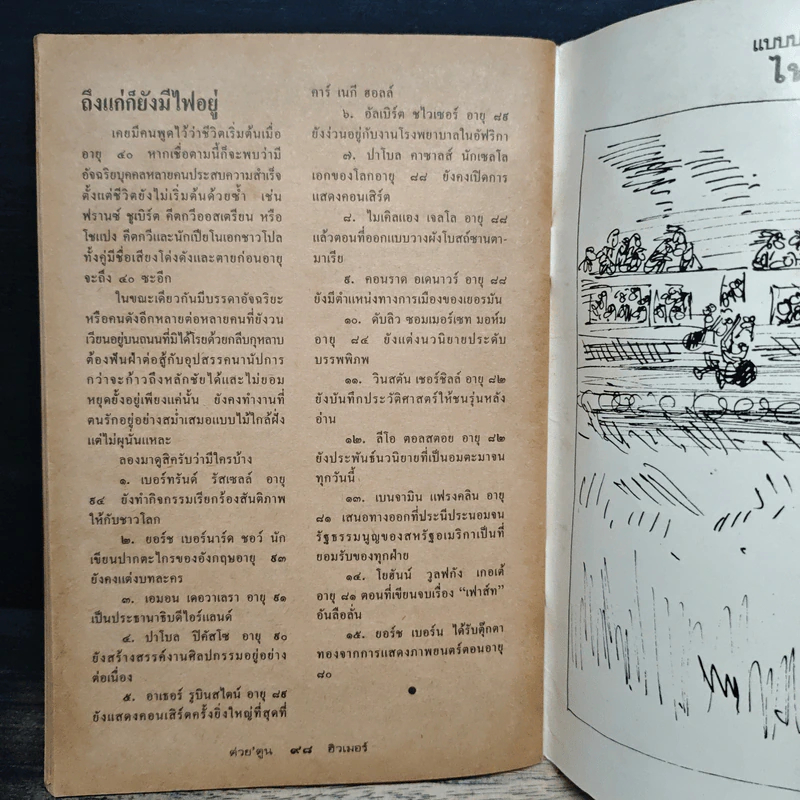 ถึงแก่ก็ยังมีไฟอยู่
เคยมีคนพูดไว้ว่าชีวิตเริ่มต้นเมื่อ
อายุ ๔๐ หากเชื่อตามนี้ก็จะพบว่ามี
อัจฉริยบุคคลหลายคนประสบความสำเร็จ
ตั้งแต่ชีวิตยังไม่เริ่มต้นด้วยซ้ำ เช่น
ฟรานซ์ ชูเบิร์ต คีตกวีออสเตรียน หรือ
โชแปง คีตกวีและนักเปียโนเอกชาวโปล
ทั้งคู่มีชื่อเสียงโด่งดังและตายก่อนอายุ
จะถึง ๔๐ ซะอีก
ในขณะเดียวกันมีบรรดาอัจฉริยะ
หรือคนดังอีกหลายต่อหลายคนที่ยังวน
เวียนอยู่บนถนนที่มิได้โรยด้วยกลีบกุหลาบ
ต้องฟันฝ่าต่อสู้กับอุปสรรคนานัปการ
กว่าจะก้าวถึงหลักชัยได้และไม่ยอม
หยุดยั้งอยู่เพียงแค่นั้น ยังคงทำงานที่
ตนรักอยู่อย่างสม่ำเสมอแบบไม้ใกล้ฝั่ง
แต่ไม่ผุนั่นแหละ
ลองมาดูสิครับว่ามีใครบ้าง
๑. เบอร์ทรันด์ รัสเซลล์ อายุ
๙๔ ยังทำกิจกรรมเรียกร้องสันติภาพ
ให้กับชาวโลก
๒. ยอร์ช เบอร์นาร์ด ชอว์ นัก
เขียนปากตะไกรของอังกฤษอายุ ๙๓
ยังคงแต่งบทละคร
๓. เอมอน เดอวาเลรา อายุ ๙๑
เป็นประธานาธิบดีไอร์แลนด์
๔. ปาโบล ปิคัสโซ อายุ ๙๐
ยังสร้างสรรค์งานศิลปกรรมอยู่อย่าง
ต่อเนื่อง
๕. อาเธอร์ รูบินสไตน์ อายุ ๘๙
ยังแสดงคอนเสิร์ตครั้งยิ่งใหญ่ที่สุดที่
คาร์ เนกี ฮอลล์
๖. อัลเบิร์ต ชไวเซอร์ อายุ ๘๙
ยังง่วนอยู่กับงานโรงพยาบาลในอัฟริกา
๗. ปาโบล คาซาลส์ นักเซลโล
เอกของโลกอายุ ๘๘ ยังคงเปิดการ
แสดงคอนเสิร์ต
๘. ไมเคิลแอง เจลโล อายุ ๘๘
แล้วตอนที่ออกแบบวางผังโบสถ์ซานตา-
มาเรีย
๙. คอนราด อเดนาวร์ อายุ ๘๘
ยังมีตำแหน่งทางการเมืองของเยอรมัน
๑๐. ดับลิว ซอมเมอร์เซท มอห์ม
อายุ ๘๔ ยังแต่งนวนิยายประดับ
บรรพพิภพ
๑๑. วินสตัน เชอร์ชิลล์ อายุ ๘๒
ยังบันทึกประวัติศาสตร์ให้ชนรุ่นหลัง
อ่าน
๑๒. ลีโอ ตอลสตอย อายุ ๘๒
ยังประพันธ์นวนิยายที่เป็นอมตะมาจน
ทุกวันนี้
๑๓. เบนจามิน แฟรงคลิน อายุ
๘๑ เสนอทางออกที่ประนีประนอมจน
รัฐธรรมนูญของสหรัฐอเมริกาเป็นที่
ยอมรับของทุกฝ่าย
๑๔. โยฮันน์ วูลฟกัง เกอเต้
อายุ ๘๑ ตอนที่เขียนจบเรื่อง “เฟาส์ท”
อันลือลั่น
๑๕. ยอร์ช เบอร์น ได้รับตุ๊กตา
ทองจากการแสดงภาพยนตร์ตอนอายุ
๘๐
ต่วย'ตูน ๙๘ ฮิวเมอร์